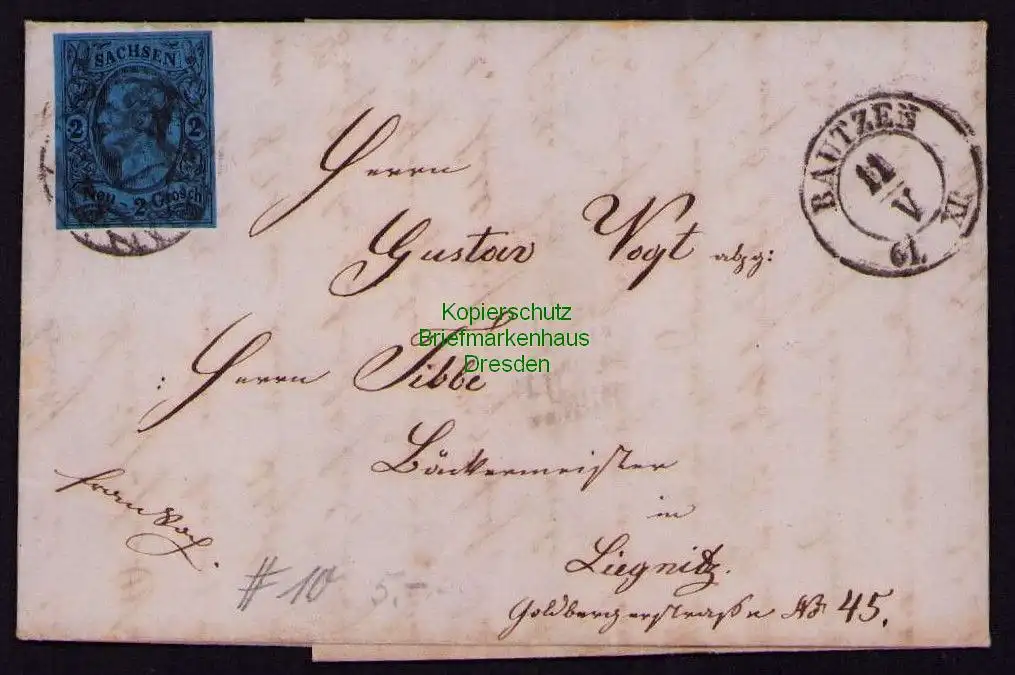 SACHSEN
2 2
Neu - 2 Grosch
BAUTZEN
11
V
61.
XI.
Herrn
Gustav Vogt abzg:
Kopierschutz
Briefmarkenhaus
Dresden
: Herrn Tibbe
Bäckermeister
in
franko
Liegnitz.
Goldbergerstraße No 45.
# 10 5.-